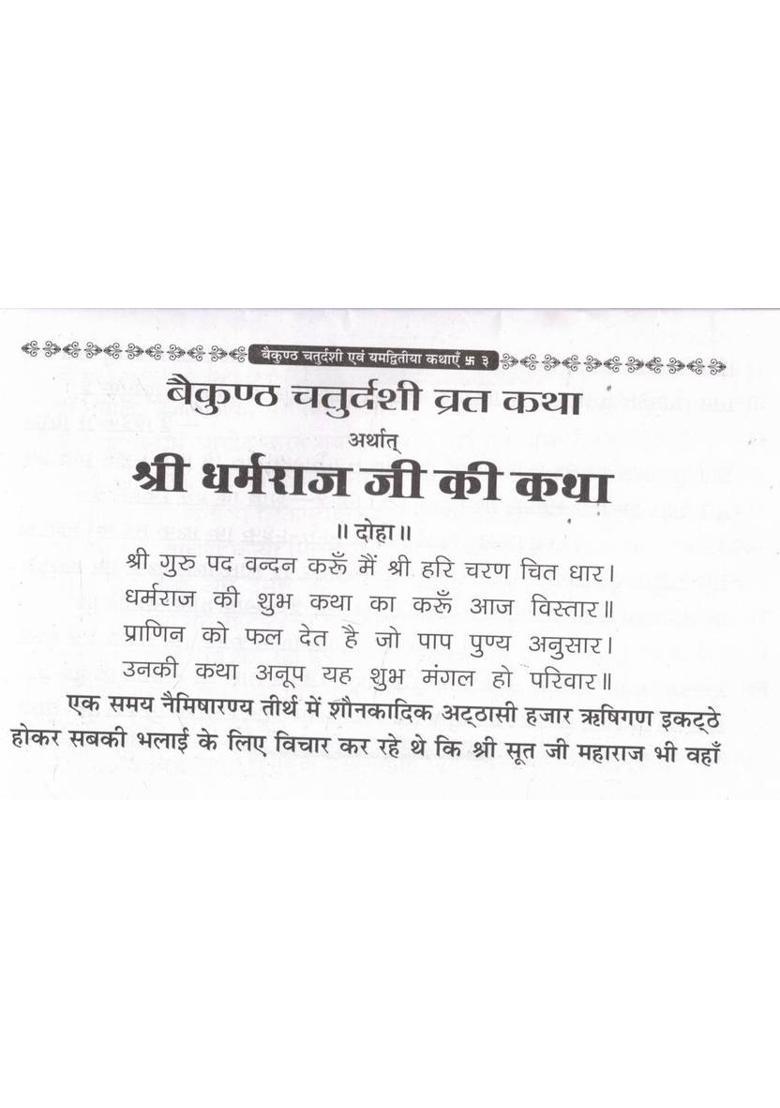 बैकुण्ठ चतुर्दशी एवं यमद्वितीया कथाएँ 卐 ३
बैकुण्ठ चतुर्दशी व्रत कथा
अर्थात्
श्री धर्मराज जी की कथा
॥ दोहा॥
श्री गुरु पद वन्दन करूँ मैं श्री हरि चरण चित धार।
धर्मराज की शुभ कथा का करूँ आज विस्तार॥
प्राणिन को फल देत है जो पाप पुण्य अनुसार।
उनकी कथा अनूप यह शुभ मंगल हो परिवार॥
एक समय नैमिषारण्य तीर्थ में शौनकादिक अट्ठासी हजार ऋषिगण इकट्ठे
होकर सबकी भलाई के लिए विचार कर रहे थे कि श्री सूत जी महाराज भी वहाँ